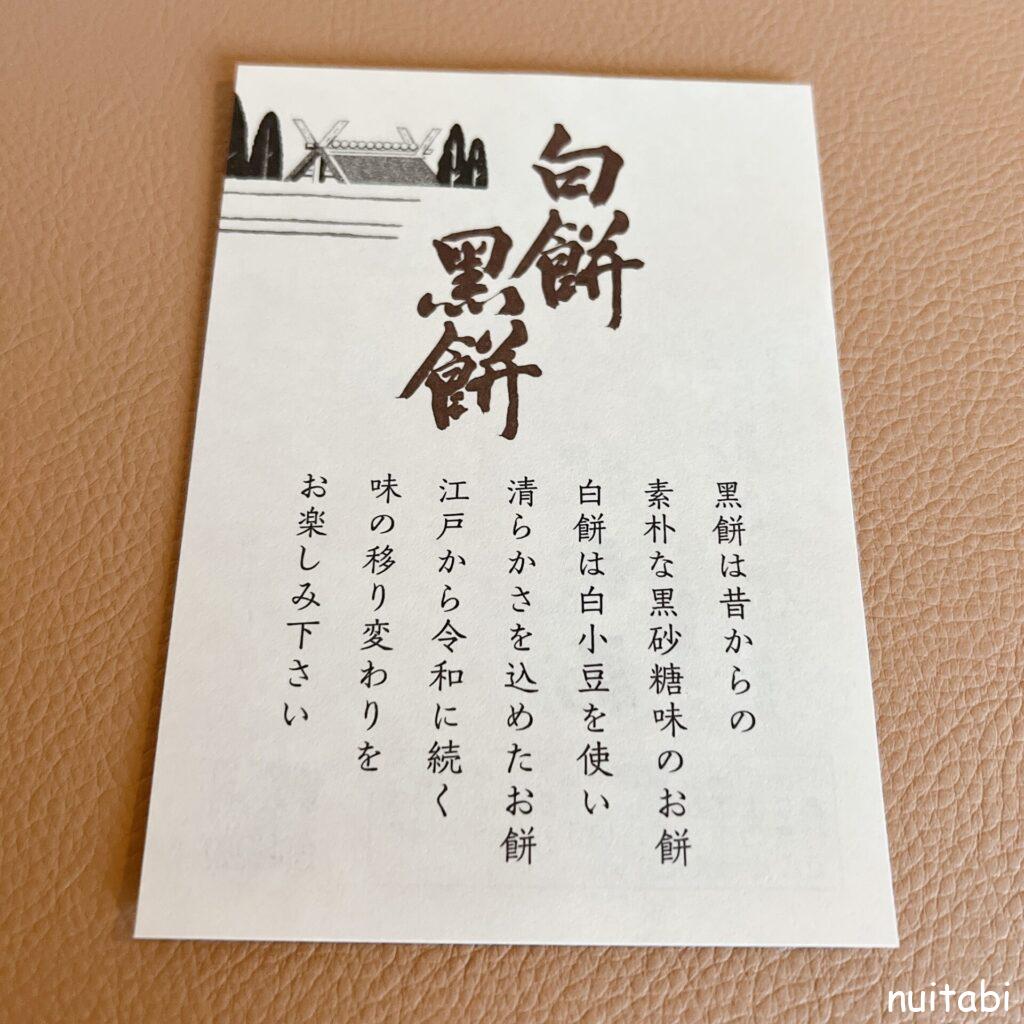 白餅
黑餅
黑餅は昔からの
素朴な黒砂糖味のお餅
白餅は白小豆を使い
清らかさを込めたお餅
江戸から令和に続く
味の移り変わりを
お楽しみ下さい
nuitabi